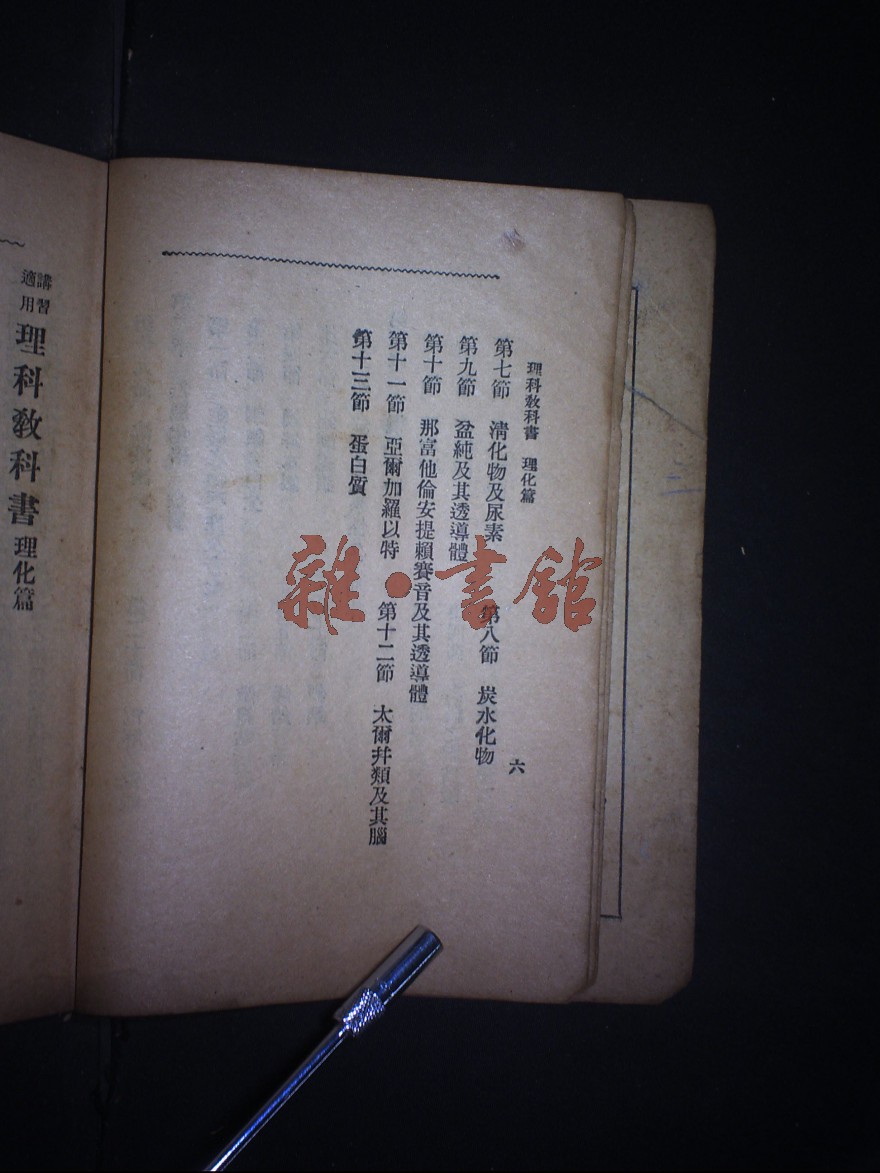 理科教科書　理化篇
六
第七節　淸化物及尿素　第八節　炭水化物
第九節　盆純及其透導體
第十節　那富他倫安提賴賽音及其透導體
第十一節　亞爾加羅以特　第十二節　太爾幷類及其腦
第十三節　蛋白質
講習適用
理科教科書　理化篇
雜·書館